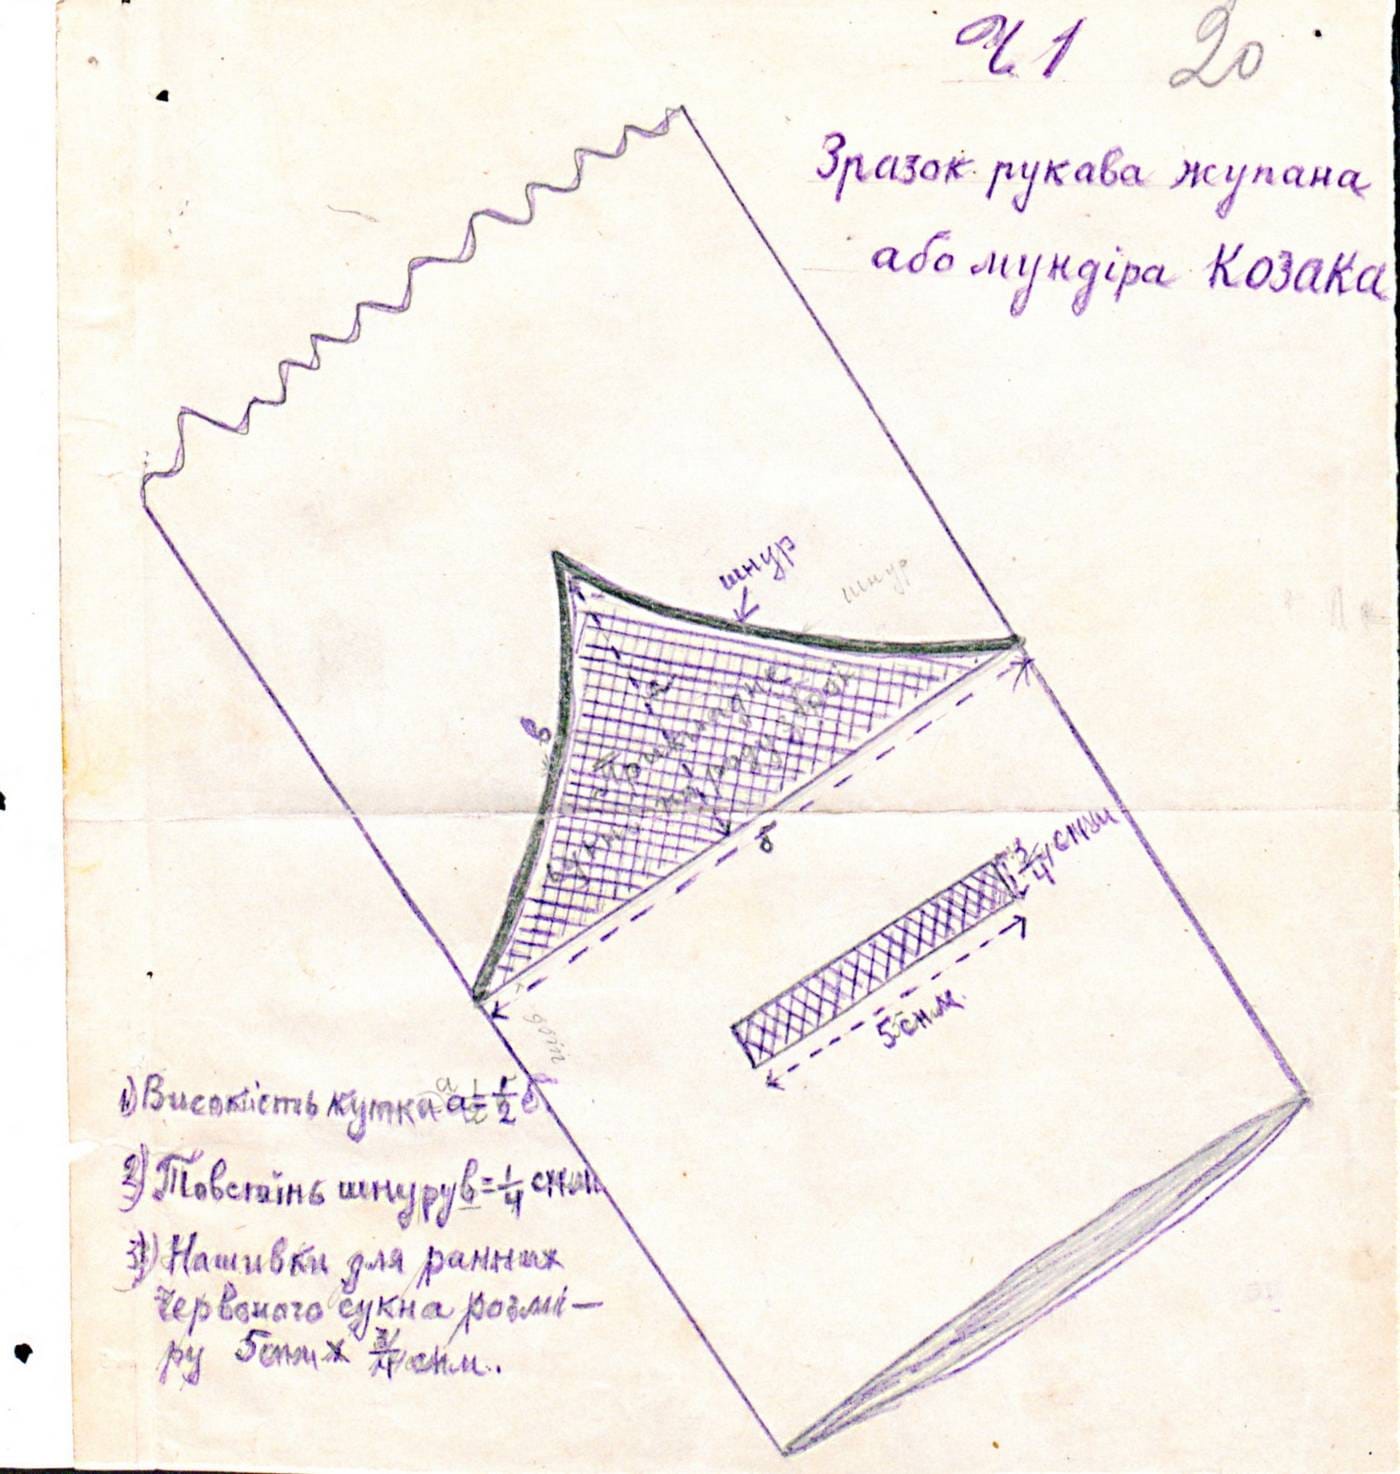 Ч. 1 20
Зразок рукава жупана
або мундіра Козака
шнур
шнур
в
а
Прикладне
сукно по роду зброї
б
3/4 снтм
5 снм.
1) Високість кутка a = 1/2 б.
2) Товстінь шнуру в = 1/4 снтм
3) Нашивки для ранних
червоного сукна розмі–
ру 5 снтм х 3/4 снм.